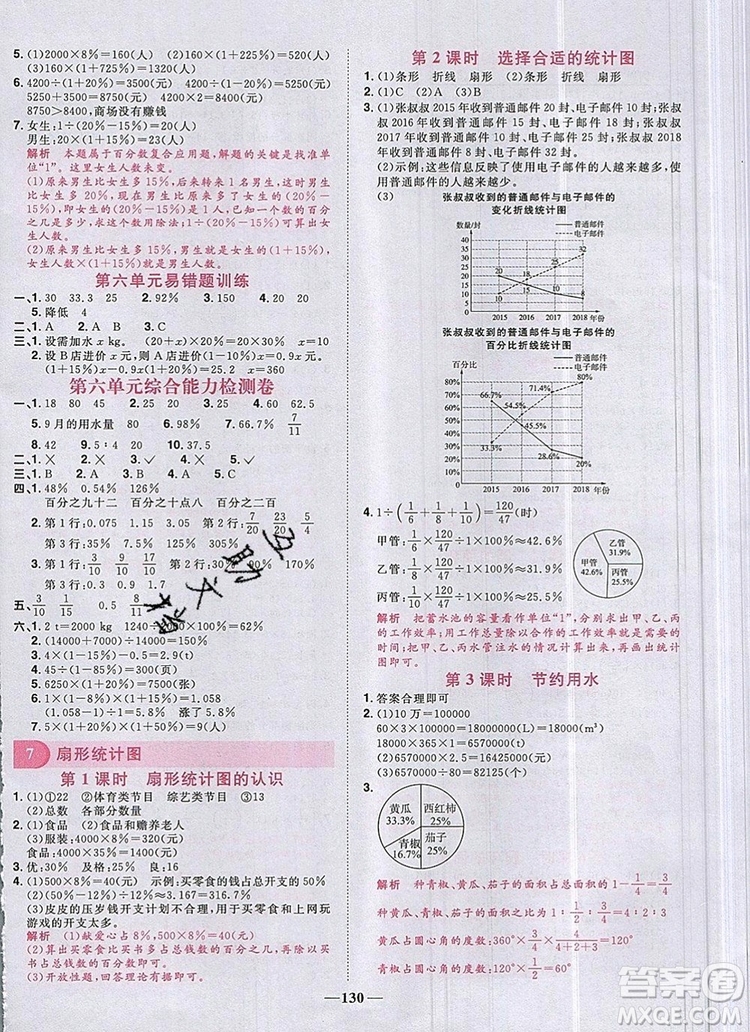 5. (1)2000×8%=160(人) (2)160×(1+25%)=200(人)
(3)160×(1+725%)=1320(人)
6. 4200÷(1+20%)=3500(元) 4200÷(1-20%)=
5250(元) 3500+5250=8750(元) 4200×2=
8400(元) 8400<8750,商场没有赚钱
7. 女生:1÷(20%-15%)=20(人)
男生:20×(1+15%)=23(人)
解析 本题属于百分数复合应用题,解题的关键是找准单
位“1”。这里女生人数不变。
(1)原来男生比女生多15%,后来转来1名男生,这时男
生比女生多20%,由此可以求出1名男生占女生的百分
比,即女生的(20%-15%)是1人,已知一个数的百分
之几是多少,求这个数,用除法:1÷(20%-15%)。
(2)根据原来男生比女生多15%可知,男生人数=女
生人数×(1+15%)。
第六单元易错题训练
一、1. 30 33.3 25 2. 92% 3. 150 4. 99.5
5. 降低 4
二、1. A 2. B 3. A 4. B
三、1. 设需加水x kg. (20+x)×20%=20 x=80
2. 设B店进价x元,则A店进价(1-10%)x元.
(1-10%)x(1+20%)=x(1+15%)-7 x=100
第六单元综合能力检测卷
一、1. 18 80 45 2. 25 40 3. 32 4. 60 62.5
5. 9月的用水量 80 6. 98% 7. 66.7% 7/11
8. 40 9. 5:4 20 10. 52
二、1. × 2. × 3. √ 4. × 5. ×
三、1. A 2. B 3. A 4. B 5. C
四、1. 48% 0.54% 126%
百分之九十二 百分之十点八 百分之二百
2. 第1行:0.075 1.15 第2行:7/20 23/20 5/4
第3行:35% 115% 7.5%
3. 第1行:3/10 9/10 第2行: 30% 90% 170%
五、3/10
六、1. 2 t=2000 kg 1240÷2000×100%=62%
2. (14000+7000)÷(1-30%)=30000(元)
3. 4×(1-45%)=2.2(t)
4. 45÷(1-85%)=300(页)
5. 6250×(1+20%)=7500(张)
6. 1×(1+15%)×(1-8%)=1.058
(1.058-1)÷1×100%=5.8%
7. 5×(1-20%)×(1+20%)=4.8(元)
7 扇形统计图
第1课时 扇形统计图的认识
1. (1)①22 ②体育类节目 综艺类节目 ③13
(2)总数 各部分数量
2. (1)食品 (2)食品和赡养老人
(3)服装:4000×10%=400(元)
食品:4000×35%=1400(元)
3. 优:30% 及格:25% 良:16
4. (1)500×8%=40(元) 示例:买零食的钱占总开支的50%
(2)(50%-12%)÷12%≈3.167=316.7%
(3)皮皮的压岁钱开支计划不合理,用于买零食和上网玩
游戏的开支太多。
解析 (1)献爱心占8%,500×8%=40(元)。
(2)算出买零食比买书多占总钱数的百分之几,再除以
买书占总钱数的百分之几即可。
(3)开放性题,回答理论合理即可。
第2课时 选择合适的统计图
1. (1)条形 折线 扇形 (2)条形 折线 扇形
2. (1)C (2)A (3)B
3. (1)张叔叔2015年收到普通邮件20封、电子邮件10封,张叔
叔2016年收到普通邮件15封、电子邮件18封,张叔叔2017
年收到普通邮件10封、电子邮件25封,张叔叔2018
年收到普通邮件8封、电子邮件32封。
(2)示例:这些信息反映了使用电子邮件的人越来越多,使
用普通邮件的人越来越少。
(3)
张叔叔收到的普通邮件与电子邮件的
变化折线统计图
数量/封
普通邮件
电子邮件
40
35
30
25
20
15
10
5
0
20 15 10 8
10 18 25 32
2015 2016 2017 2018 年份
张叔叔收到的普通邮件与电子邮件的
百分比折线统计图
普通邮件
电子邮件
百分比
80%
70%
60%
50%
40%
30%
20%
10%
0
66.7% 45.5% 28.6% 20%
33.3% 54.5% 71.4% 80%
2015 2016 2017 2018 年份
4. 1÷(1/6+1/8+1/10)=120/47(时)
甲管:1/6×120/47÷1×100%≈42.6%
乙管:1/8×120/47÷1×100%≈31.9%
丙管:1/10×120/47÷1×100%≈25.5%
乙管
31.9%
甲管
42.6%
丙管
25.5%
解析 把蓄水池的容量看作单位“1”,分别求出甲、乙、丙
的工作效率;用工作总量÷工作效率和=合作的工作
时间;再根据甲、乙、丙水管注水的情况计算百分比画出统
计图即可。
第3课时 节约用水
1. 答案合理即可
2. (1)10万=100000
60×3×100000=18000000(L)=18000(m³)
18000×365=6570000(m³)
(2)6570000÷365÷10=1800(户)
3.
黄瓜
33.3%
西红柿
25%
青椒
16.7%
茄子
25%
解析 种青椒、黄瓜、茄子的面积占总面积的1-1/4=3/4
种黄瓜、青椒、茄子的面积的比=1/3:1/6:1/4=4:2:3
黄瓜占圆心角的度数:360°×3/4×4/(4+2+3)=120°
青椒占圆心角的度数:120°×1/2=60°
130
答案圈
MXQE.COM